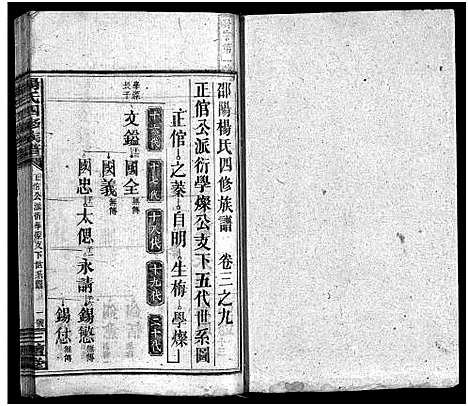 邵陽楊氏四修族譜 卷三之九
正倌公派衍學燦公支下五代世系圖
正倌 之蓁 自明 生梅 學燦
十六代 十七代 十八代 十九代 二十代
學燦長子
文鎰 國全 無傳
國義 無傳
國忠 太偲 永請 錫慾 無傳
錫怤 無傳
楊氏四修族譜
正倌公派衍學燦公支下世系圖